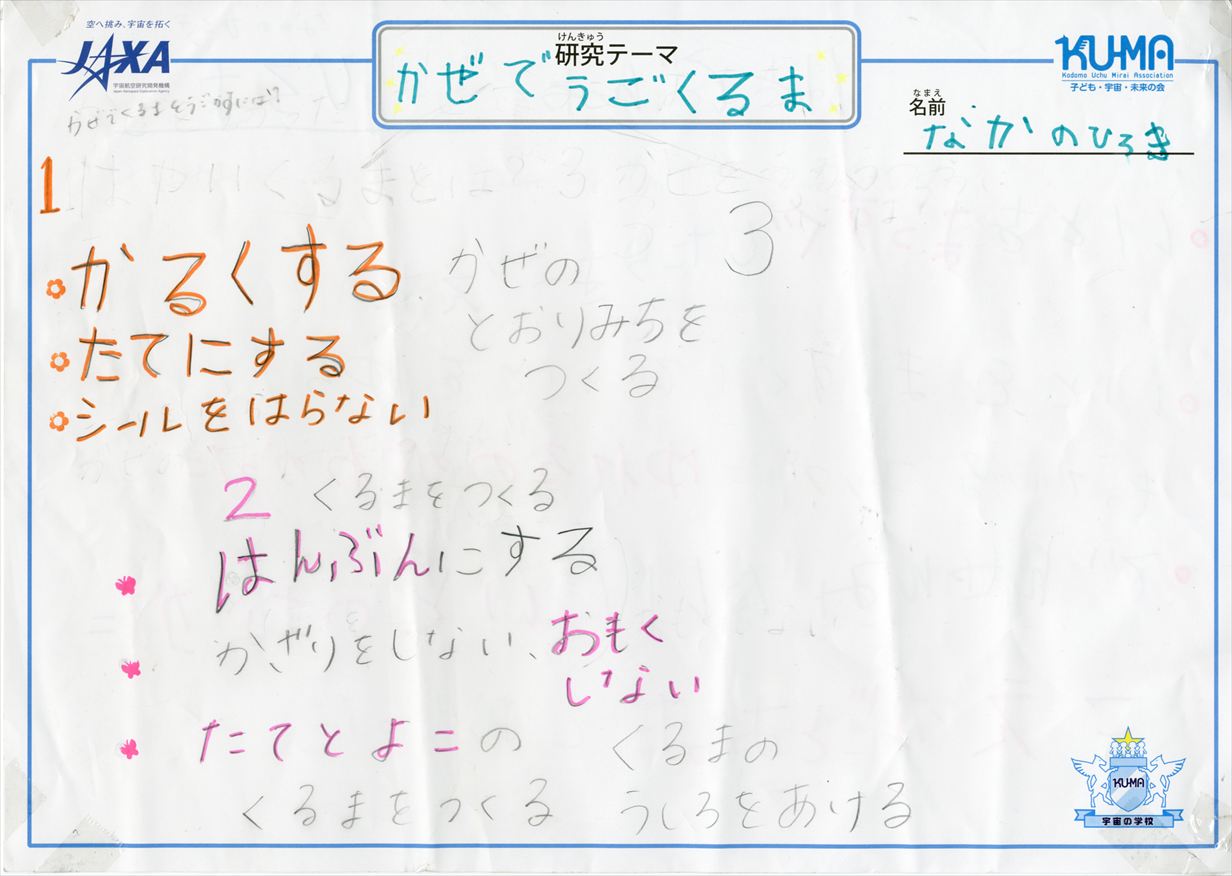 空へ挑み、宇宙を拓く
JAXA
宇宙航空研究開発機構
Japan Aerospace Exploration Agency
けんきゅう
研究テーマ
かぜでうごくるま
KU-MA
Kodomo Uchu Mirai Association
子ども・宇宙・未来の会
なまえ
名前
なかのひろき
かぜでくるまをうごかすには?
1
かるくする
たてにする
シールをはらない
3
かぜの
とおりみちを
つくる
2 くるまをつくる
はんぶんにする
かざりをしない、おもく
しない
たてとよこの
くるまをつくる
くるまの
うしろをあける
KU-MA
宇宙の学校